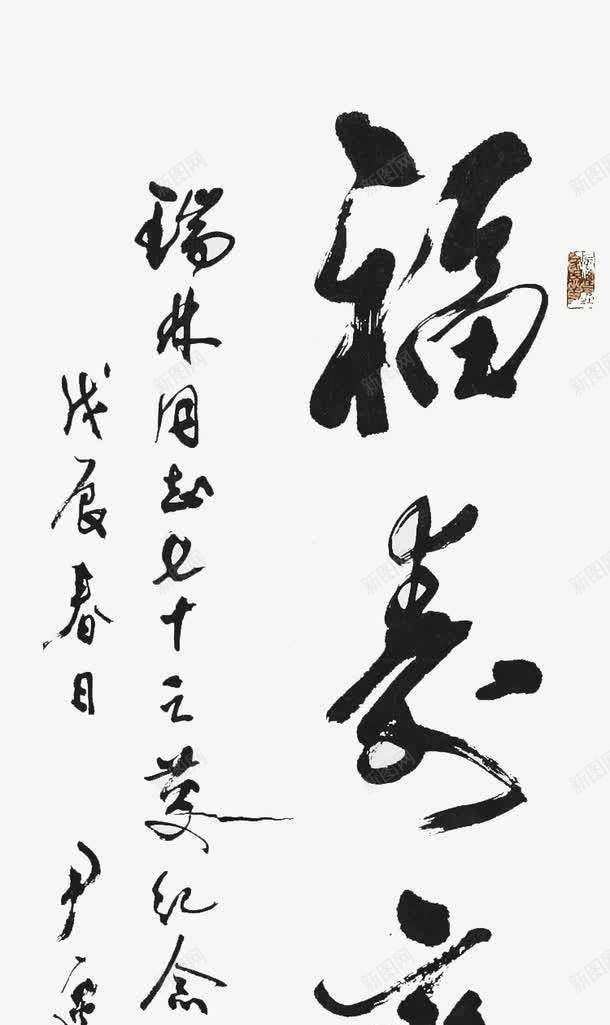 福寿
瑞林同志七十之庆纪念
戊辰春日 尹
新图网